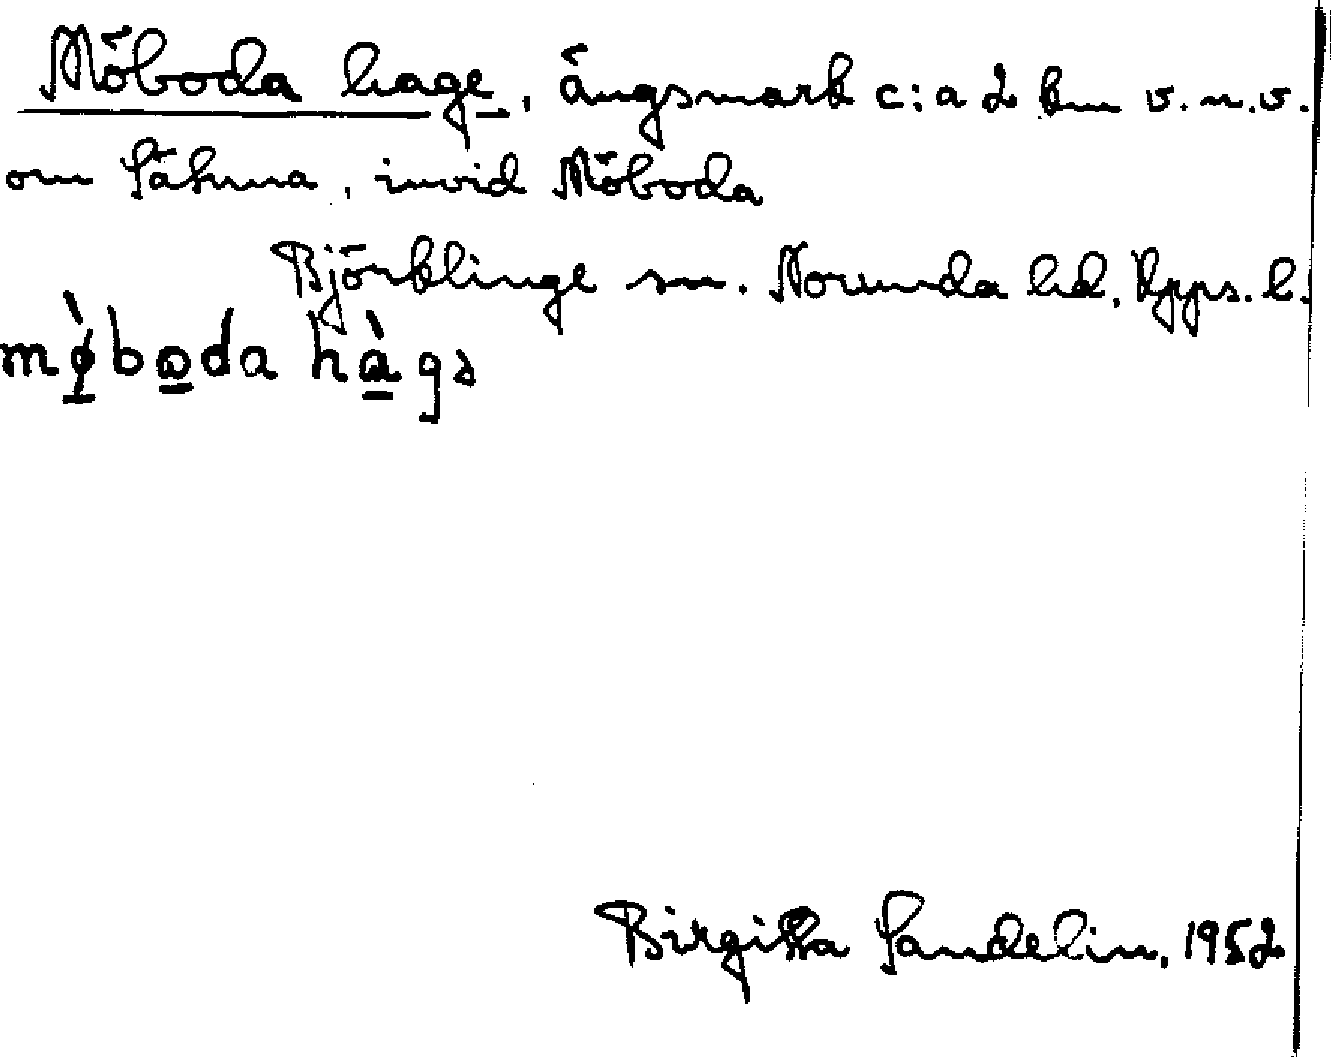 Möboda hage, ängsmark c:a 2 km v.n.v.
om Sätuna, invid Möboda
Björklinge sn. Norunda hd. Upps. l.
mø̱̀bo̱da hà̱gə
Birgitta Sandelin, 1952